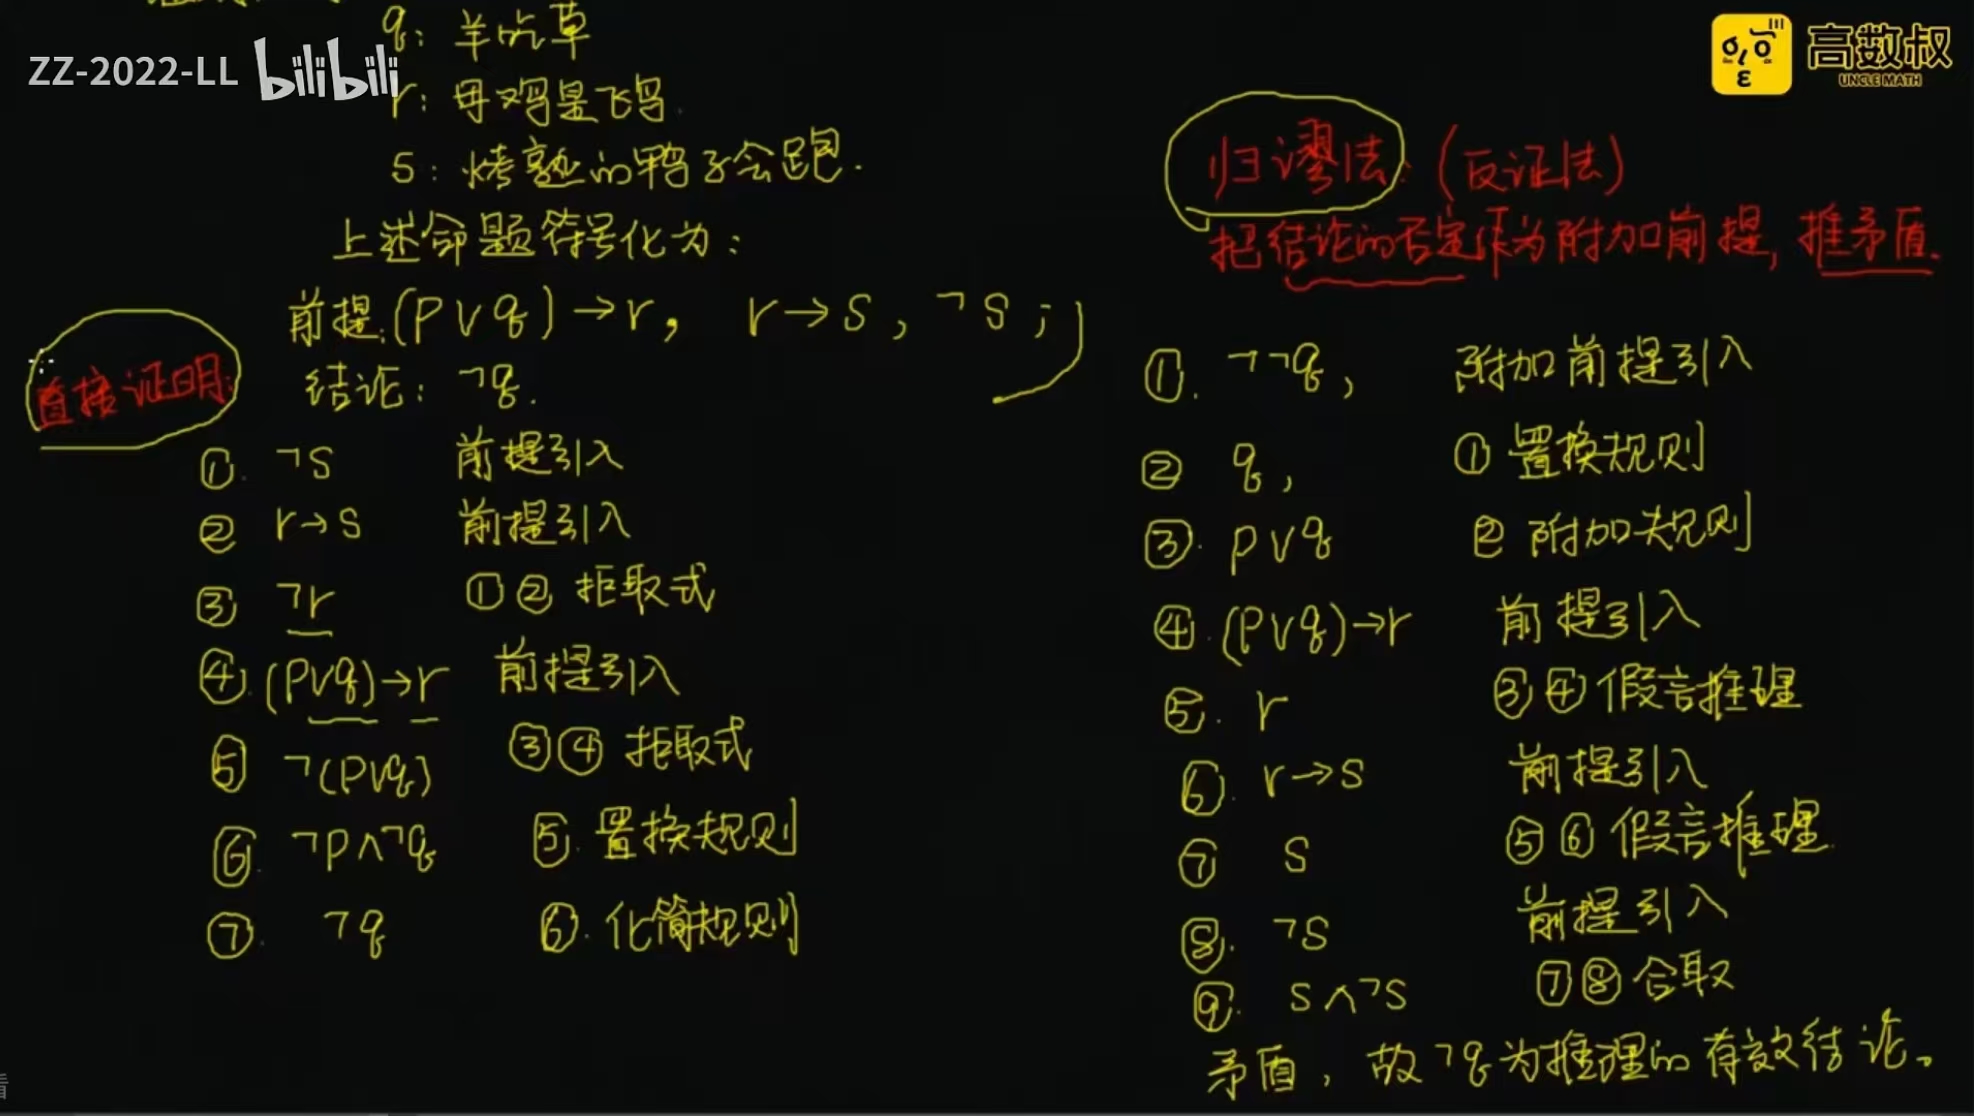 ZZ-2022-LL bilibili
高数叔
UNCLE MATH
q: 羊吃草
r: 母鸡是飞鸟.
s: 烤熟的鸭子会跑.
上述命题符号化为:
前提:(p∨q)→r, r→s, ¬s;
结论: ¬q.
直接证明:
①. ¬s 前提引入
② r→s 前提引入
③ ¬r ①② 拒取式
④. (p∨q)→r 前提引入
⑤ ¬(p∨q) ③④ 拒取式
⑥. ¬p∧¬q ⑤. 置换规则
⑦. ¬q ⑥. 化简规则
归谬法: (反证法)
把结论的否定作为附加前提, 推矛盾.
①. ¬¬q, 附加前提引入
② q, ① 置换规则
③. p∨q ② 附加规则
④. (p∨q)→r 前提引入
⑤. r ③④假言推理
⑥. r→s 前提引入
⑦ s ⑤⑥ 假言推理.
⑧. ¬s 前提引入
⑨. s∧¬s ⑦⑧合取
矛盾, 故¬q为推理的有效结论。
看